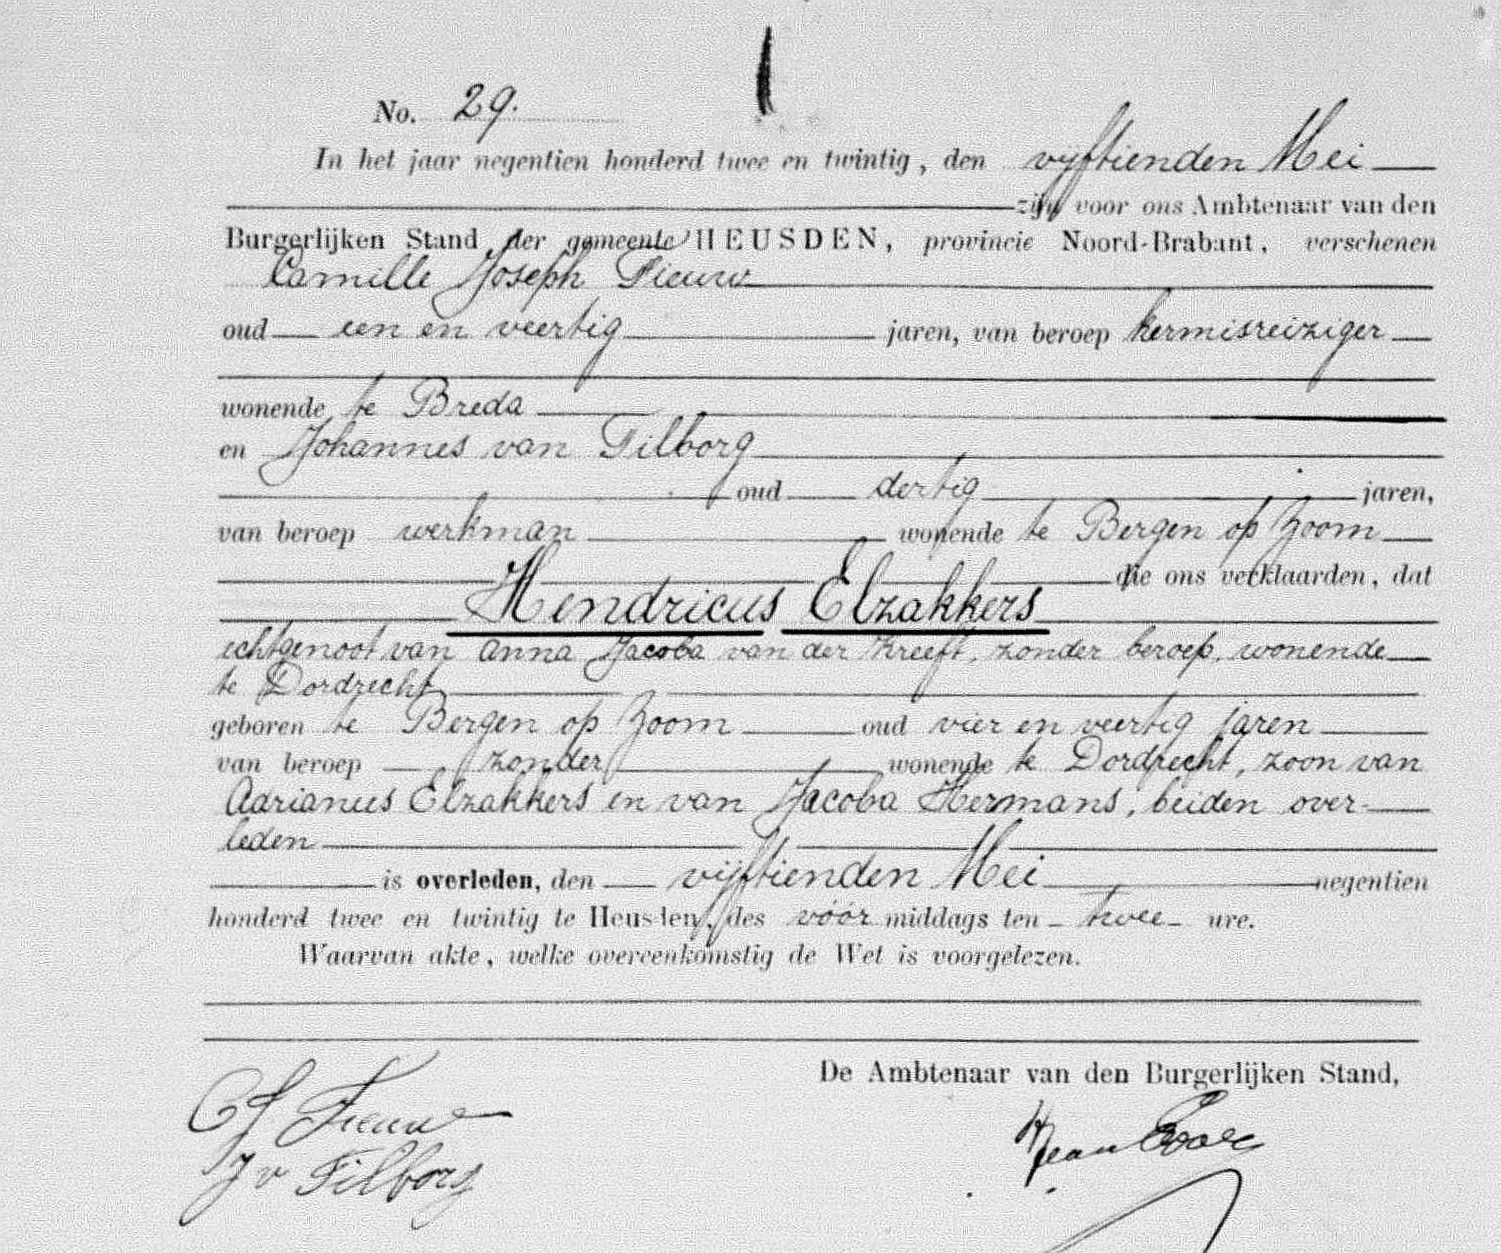 No. 29.
In het jaar negentien honderd twee en twintig, den vijftienden Mei
zijn voor ons Ambtenaar van den
Burgerlijken Stand der gemeente HEUSDEN, provincie Noord-Brabant, verschenen
Camille Joseph Fieuw
oud een en veertig jaren, van beroep kermisreiziger
wonende te Breda
en Johannes van Tilborg
oud dertig jaren,
van beroep werkman wonende te Bergen op Zoom
die ons verklaarden, dat
Hendricus Elzakkers
echtgenoot van Anna Jacoba van der Kreeft, zonder beroep, wonende
te Dordrecht
geboren te Bergen op Zoom oud vier en veertig jaren
van beroep zonder wonende te Dordrecht, zoon van
Adrianus Elzakkers en van Jacoba Hermans, beiden over-
leden
is overleden, den vijftienden Mei negentien
honderd twee en twintig te Heusden, des vóór middags ten twee ure.
Waarvan akte, welke overeenkomstig de Wet is voorgelezen.
De Ambtenaar van den Burgerlijken Stand,
C J Fieuw
J v Tilborg